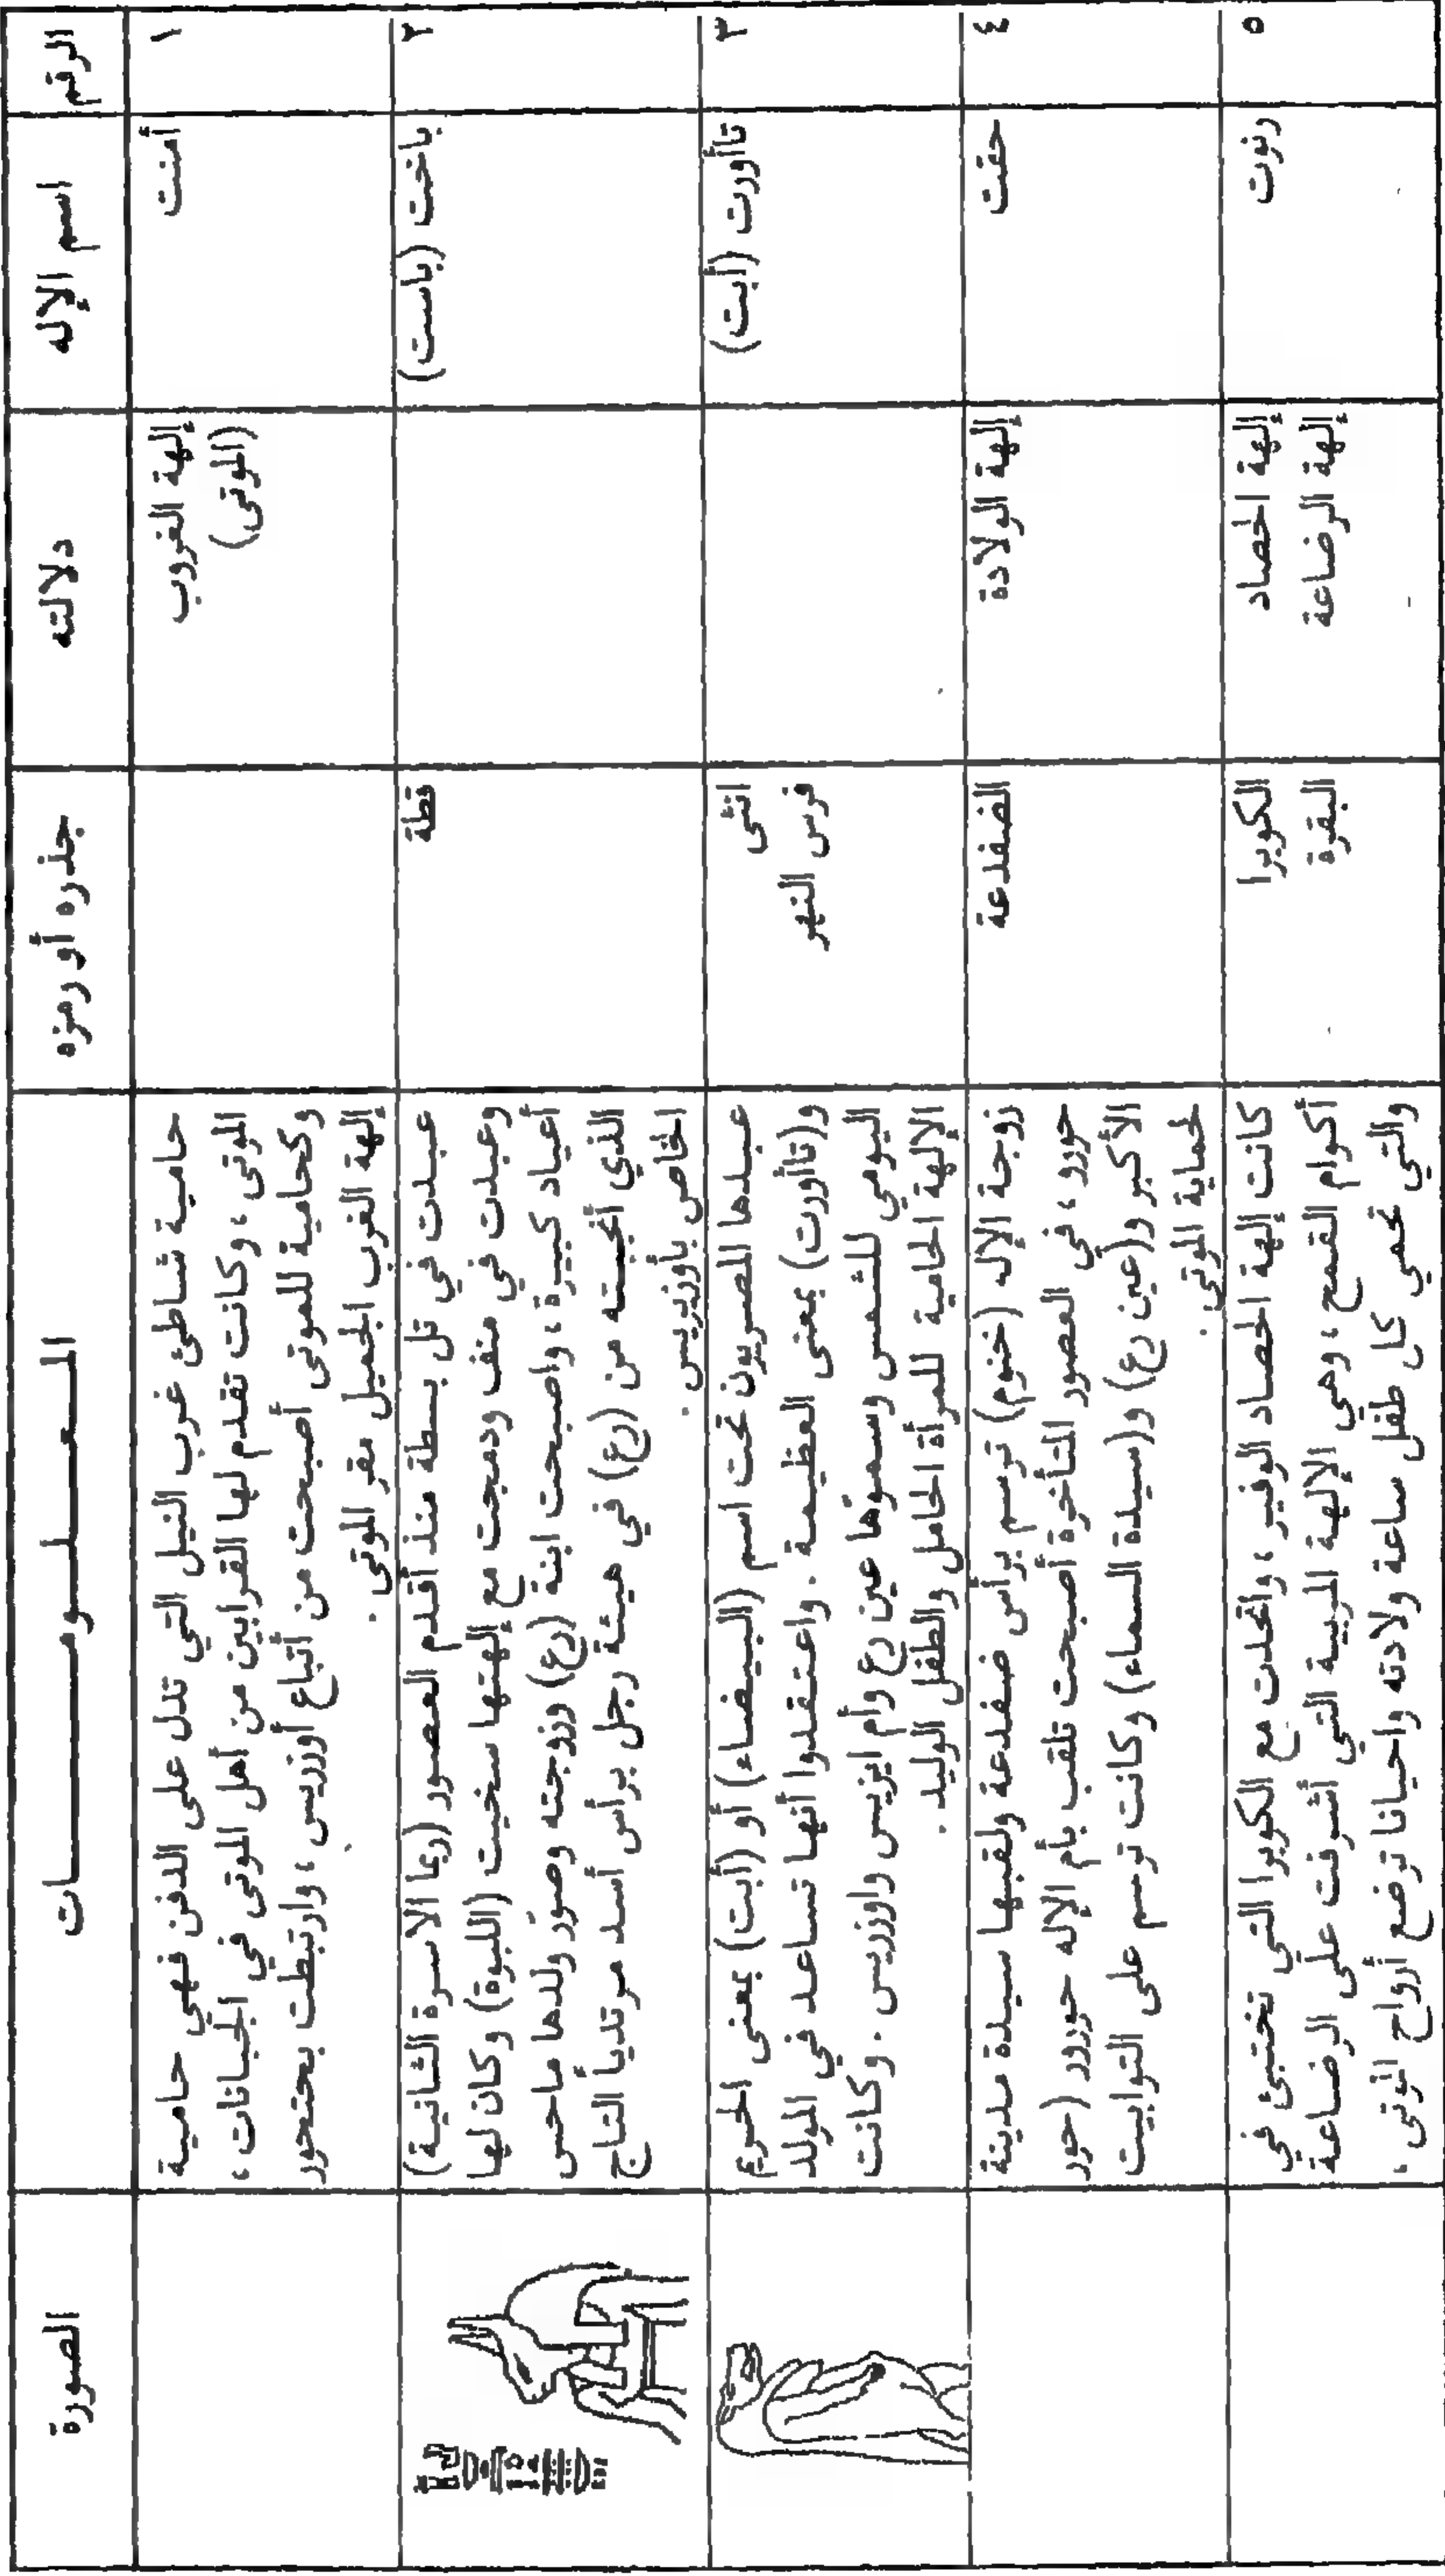 الرقم
اسم الإله
دلالته
جذره أو رمزه
المـعـــلـــومـــــــات
الصورة
١
أمنت
إلهة الغروب
(الموتى)
حامية شاطئ غرب النيل التي تدل على الدفن فهي حامية
الموتى، وكانت تقدم لها القرابين من أهل الموتى في الجبانات،
وكحامية للموتى أصبحت من أتباع أوزريس، وارتبطت بحتحور
إلهة الغرب الجميل مقر الموتى.
٢
باخت (باست)
قطة
عبدت في تل بسطة منذ أقدم العصور (ربما الاسرة الثانية)
وعبدت في منف ودمجت مع إلهتها سخيت (اللبوة) وكان لها
أعياد كبيرة، واصبحت ابنة (رع) وزوجته وصوّر ولدها ماحس
الذي أنجبته من (رع) في هيئة رجل برأس أسد مرتدياً التاج
الخاص بأوزيريس.
٣
تاأورت (أبت)
انثى
فرس النهر
عبدها المصريون تحت اسم (البيضاء) أو (أبت) بمعنى الحريم
و(تاأورت) بمعنى العظيمة. واعتقدوا أنها تساعد في المولد
اليومي للشمس وسموّها عين رع وأم ايزيس واوزريس. وكانت
الإلهة الحامية للمرأة الحامل والطفل الوليد.
٤
حقت
إلهة الولادة
الضفدعة
زوجة الإله (خنوم) ترسم برأس ضفدعة ولقبها سيدة مدينة
حورو، في العصور المتأخرة أصبحت تلقب بأم الإله حورور (حور
الأكبر و(عين رع) و(سيدة السماء) وكانت ترسم على التوابيت
لحماية الموتى.
٥
رنوت
إلهة الحصاد
إلهة الرضاعة
الكوبرا
البقرة
كانت إلهة الحصاد الوفير، واتحدت مع الكوبرا التي تختبئ في
أكوام القمح، وهي الإلهة المربية التي أشرفت على الرضاعة
والتي تحمي كل طفل ساعة ولادته واحيانا ترضع أرواح الموتى،